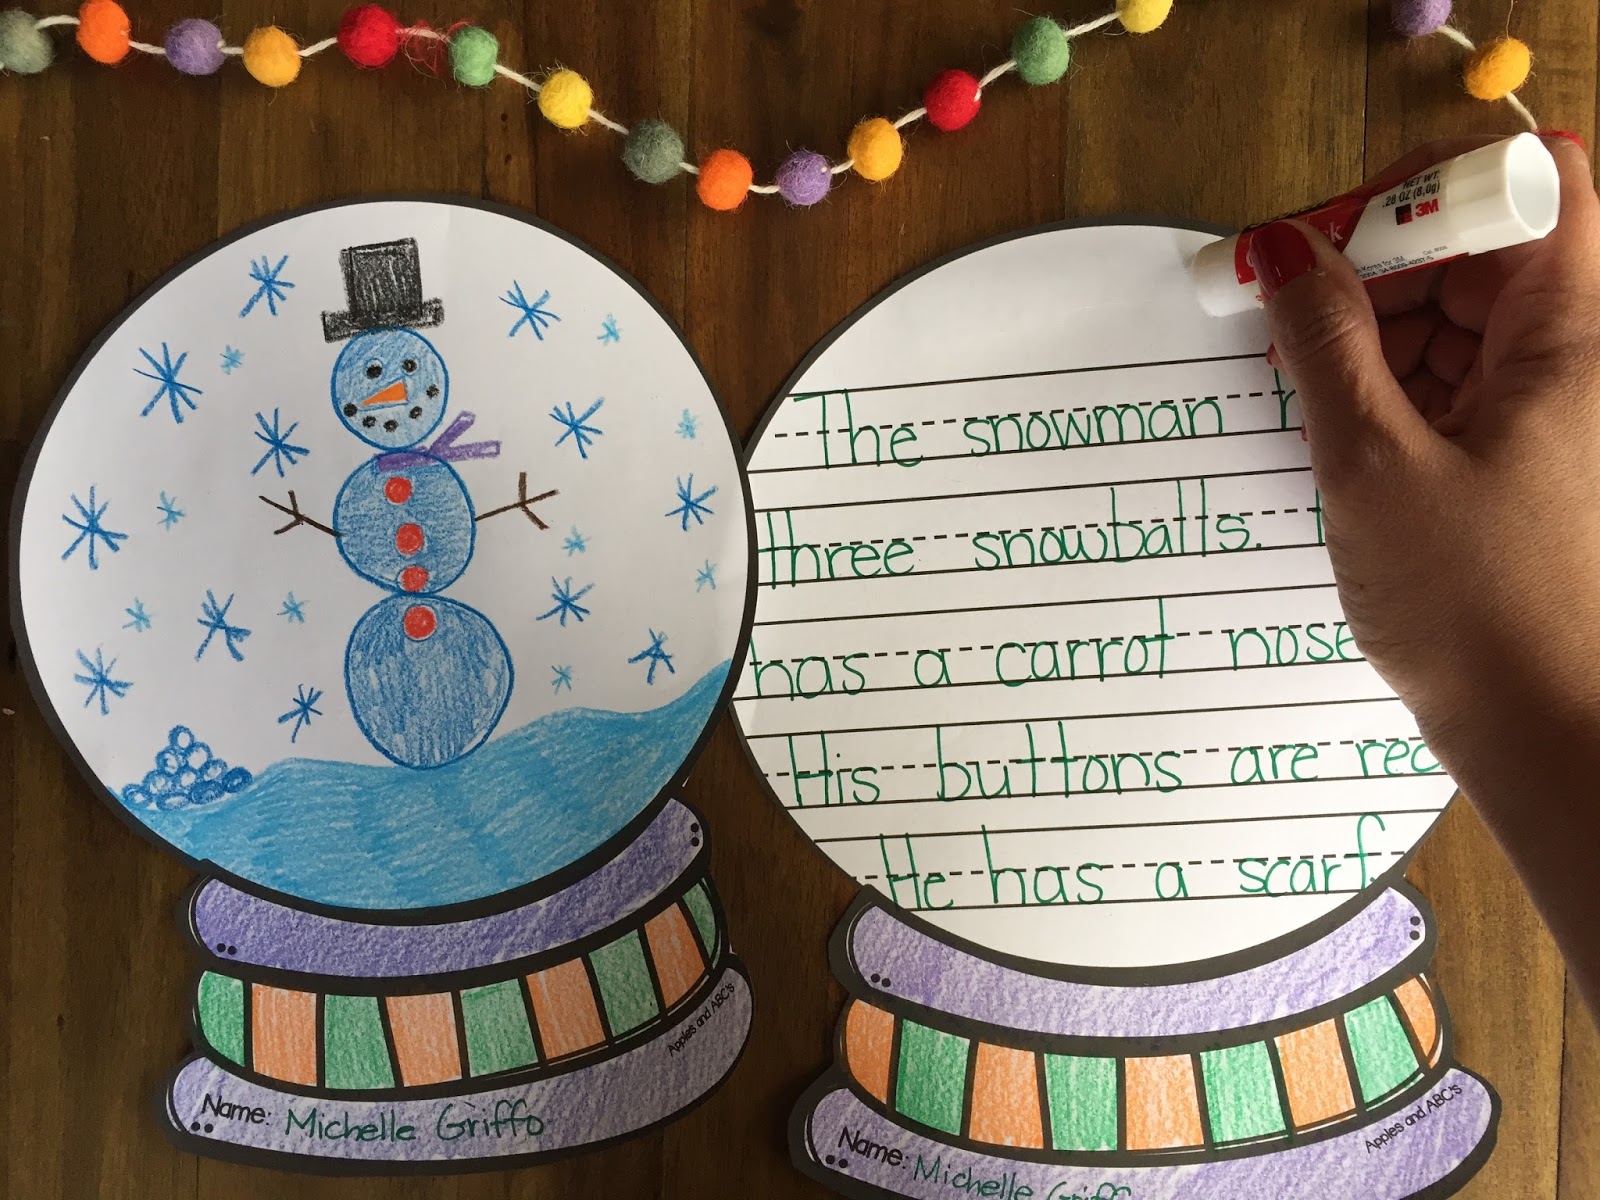 NET WT.
.28 OZ (8,0g)
3M
The snowman
three snowballs.
has a carrot nose
His buttons are red
He has a scarf.
Apples and ABC's
Name: Michelle Griffo
Apples and ABC's
Name: Michelle Griffo